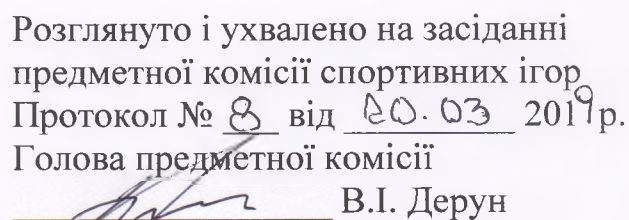 Розглянуто і ухвалено на засіданні
предметної комісії спортивних ігор
Протокол № 8 від 20.03 2019р.
Голова предметної комісії
В.І. Дерун